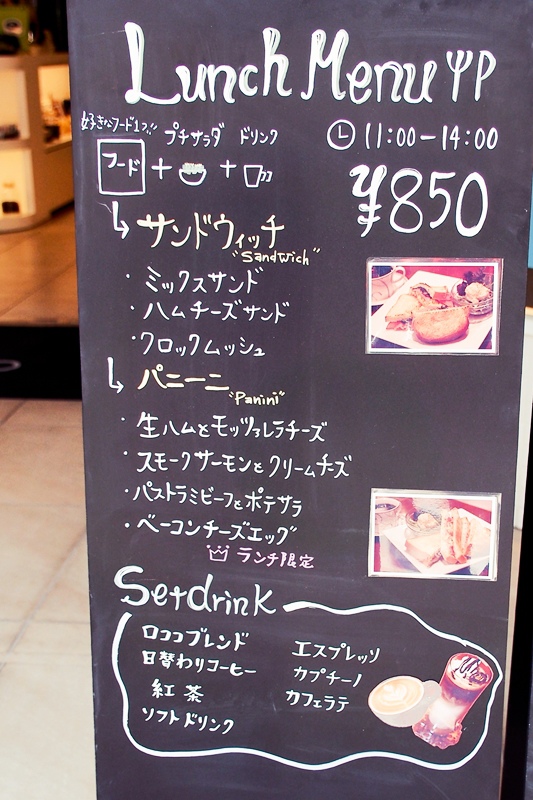 Lunch Menu
好きなフード1つ!! プチサラダ ドリンク
フード + +
11:00-14:00
¥850
サンドウィッチ
"Sandwich"
・ミックスサンド
・ハムチーズサンド
・クロックムッシュ
パニーニ
"Panini"
・生ハムとモッツァレラチーズ
・スモークサーモンとクリームチーズ
・パストラミビーフとポテサラ
・ベーコンチーズエッグ
ランチ限定
Setdrink
ロココブレンド
日替わりコーヒー
紅茶
ソフトドリンク
エスプレッソ
カプチーノ
カフェラテ